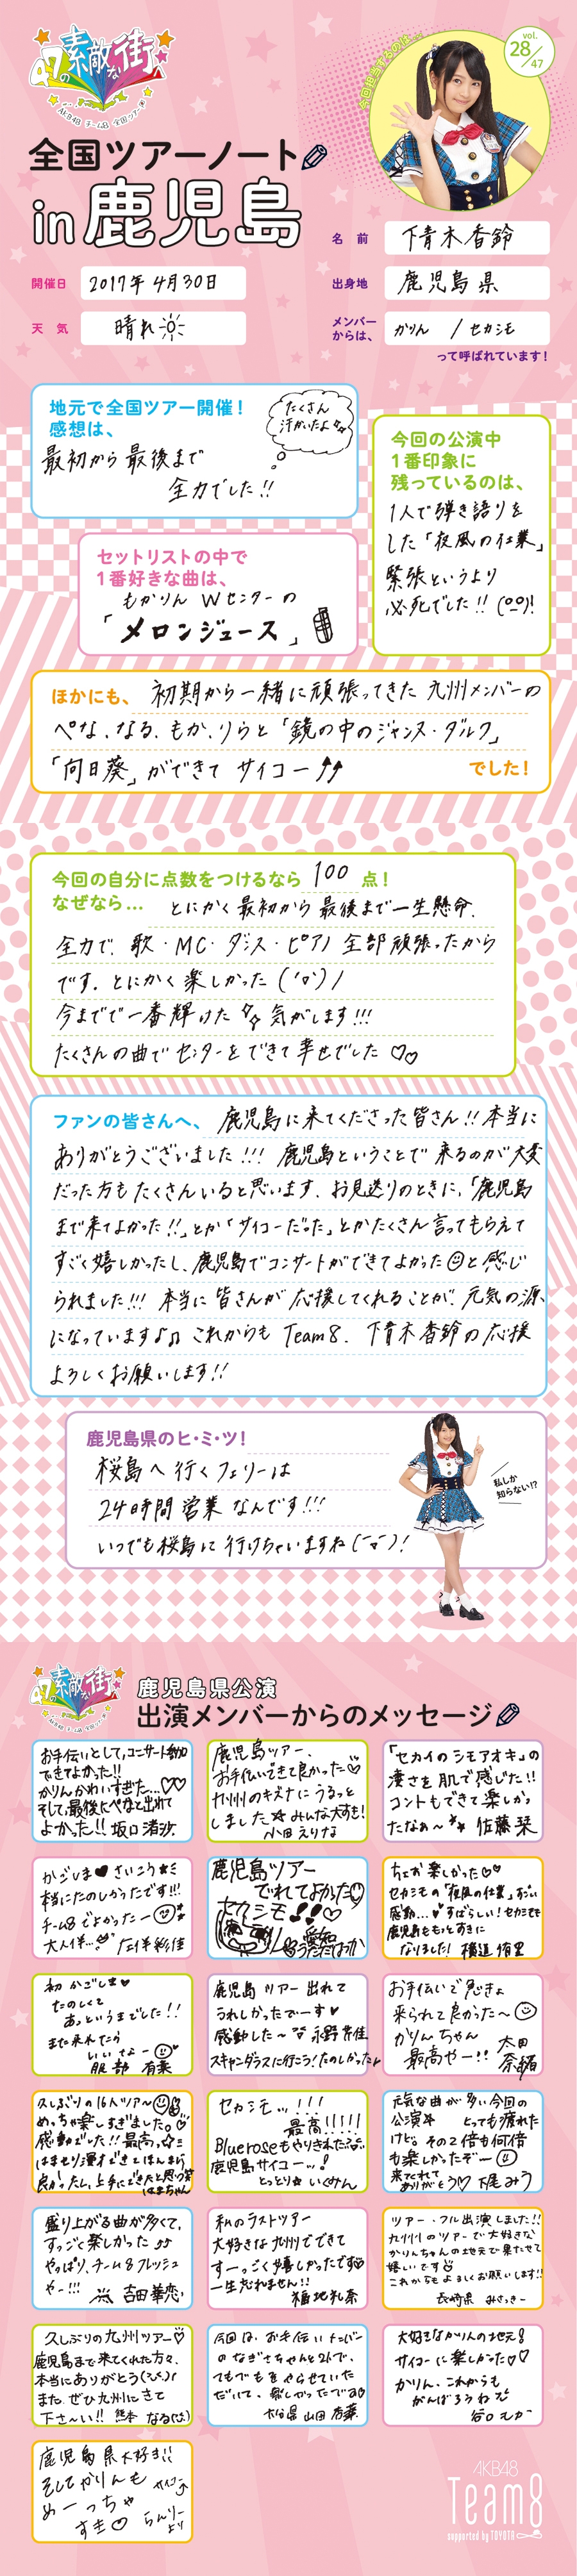 47の素敵な街へ
AKB48 チーム8 全国ツアー
今回担当するのは…
vol.
28/47
全国ツアーノート
in 鹿児島
名 前 下青木香鈴
開催日 2017年 4月30日
出身地 鹿児島県
天 気 晴れ
メンバー
からは、 かりん / セカシモ
って呼ばれています!
地元で全国ツアー開催!
感想は、
たくさん
汗かいたよ
最初から最後まで
全力でした!!
今回の公演中
1番印象に
残っているのは、
1人で弾き語りを
した「夜風の仕業」
緊張というより
必死でした!!
セットリストの中で
1番好きな曲は、
もかりん Wセンターの
「メロンジュース」
ほかにも、 初期から一緒に頑張ってきた 九州メンバーの
ぺな、なる、もか、りらと「鏡の中のジャンヌ・ダルク」
「向日葵」ができて サイコー↑↑ でした!
今回の自分に点数をつけるなら 100 点!
なぜなら… とにかく最初から最後まで一生懸命、
全力で、歌・MC・ダンス・ピアノ 全部頑張ったから
です。とにかく楽しかった
今までで一番輝けた 気がします!!!
たくさんの曲でセンターをできて幸せでした♡♡
ファンの皆さんへ、 鹿児島に来てくださった皆さん!!本当に
ありがとうございました!!! 鹿児島ということで 来るのが大変
だった方もたくさんいると思います。お見送りのときに、「鹿児島
まで来てよかった!!」とか「サイコーだった」とかたくさん言ってもらえて
すごく嬉しかったし、鹿児島でコンサートができてよかった と感じ
られました!!! 本当に皆さんが 応援してくれることが、元気の源、
になっています♪♫ これからも Team8、下青木香鈴の応援
よろしくお願いします!!
鹿児島県のヒ・ミ・ツ!
桜島へ行くフェリーは
24時間営業なんです!!!
いつでも桜島に行けちゃいますね
私しか
知らない!?
47の素敵な街へ
AKB48 チーム8 全国ツアー
鹿児島県公演
出演メンバーからのメッセージ
お手伝いとして、コンサート参加
できてよかった!!
かりんかわいすぎた…♡♡
そして最後にぺなと出れて
よかった!! 坂口渚沙
鹿児島ツアー、
お手伝いできて良かった♡
九州のキズナにうるっと
しました☆みんな大すき!
小田えりな
「セカイのシモアオキ」の
凄さを肌で感じた!!
コントもできて楽しかっ
たなぁ〜 佐藤栞
かごしま♥さいこう☆
本当にたのしかったです!!!
チーム8でよかったー
鹿児島ツアー
でれてよかった
セカシモ!!♡
愛知
うただはつか
ちょお楽しかった♡♡
セカシモの「夜風の仕業」すごい
感動…♥すばらしい!セカシモも
鹿児島ももっとすきに
なりました! 横道侑里
初 かごしま♥
たのしくて
あっというまでした!!
また来れたら
いいなー
服部 有菜
鹿児島 ツアー 出れて
うれしかったでーす♥
感動した〜 永野芹佳
スキャンダラスに行こう!たのしかった♥
お手伝いで
来られて良かった〜
かりんちゃん
最高やー!! 太田
奈緒
久しぶりの16人ツアー
めっちゃ楽しすぎました。
感動でした!!最高っ☆
はまちゃん
セカシモッ!!!
最高!!!!!
Blueroseもやりきれた
鹿児島サイコーッ!
とっとり☆ いくみん
元気な曲が多い今回の
公演 とっても疲れた
けど、その2倍も何倍
も楽しかったぞー
来てくれて
ありがとう♡ 下尾みう
盛り上がる曲が多くて、
すっごく楽しかった♪♪
やっぱり、チーム8フレッシュ
やー!!! 吉田華恋
私のラストツアー
大好きな九州でできて
すーっごく嬉しかったです
一生忘れません!!
福地礼奈
ツアー・フル出演しました!!
九州のツアーで大好きな
かりんちゃんの地元で果たせて
嬉しいです
これからもよろしくお願いします!!
長崎県 みさっきー
久しぶりの九州ツアー♡
鹿児島まで来てくれた方々、
本当にありがとう
また、ぜひ九州にきて
下さ〜い!! 熊本 なる
今回は、お手伝いメンバー
だいて、楽しかったです
大好きなかりんの地元!
サイコーに楽しかった♡♡
かりん、これからも
がんばろうね
谷口もか
鹿児島県大好き!!
そしてかりんも
めーっちゃ
すき♡ らんりー
より
AKB48
Team8
supported by TOYOTA